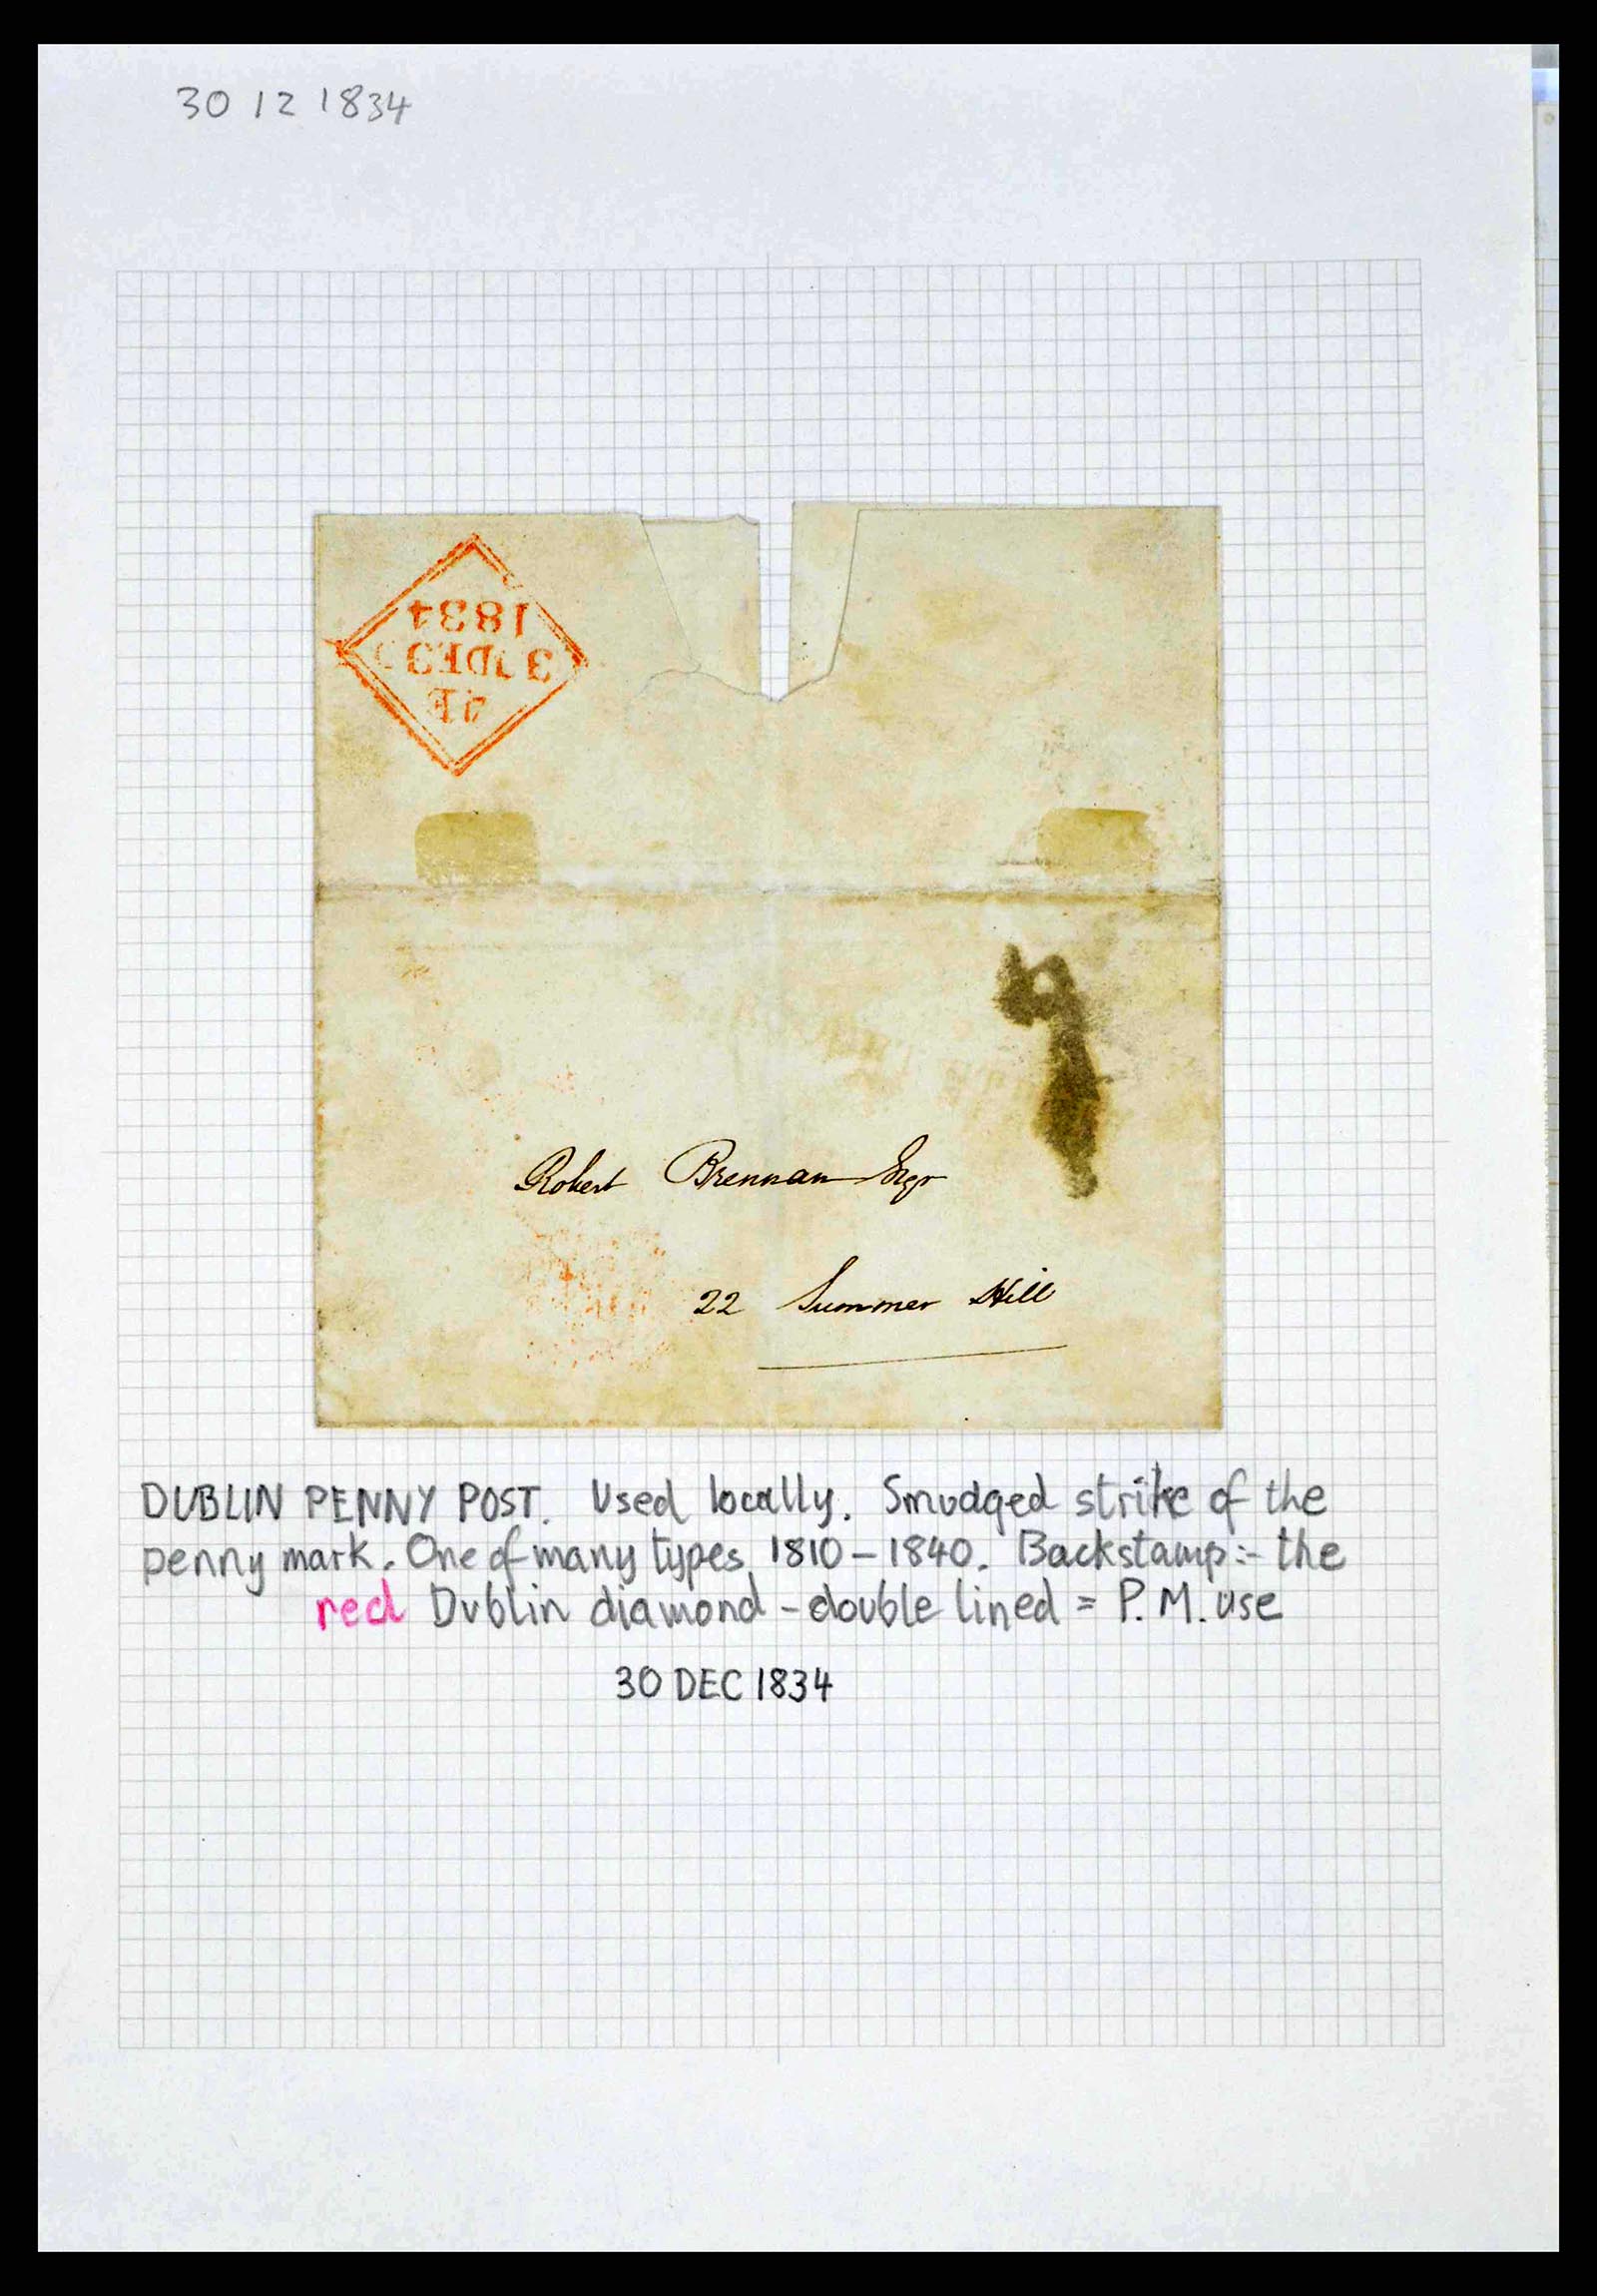 30 12 1834
1834
Robert Brennan Esqr
22 Summer Hill
DUBLIN PENNY POST. Used locally. Smudged strike of the
penny mark. One of many types, 1810 – 1840. Backstamp:- the
red Dublin diamond - double lined = P.M. use
30 DEC 1834